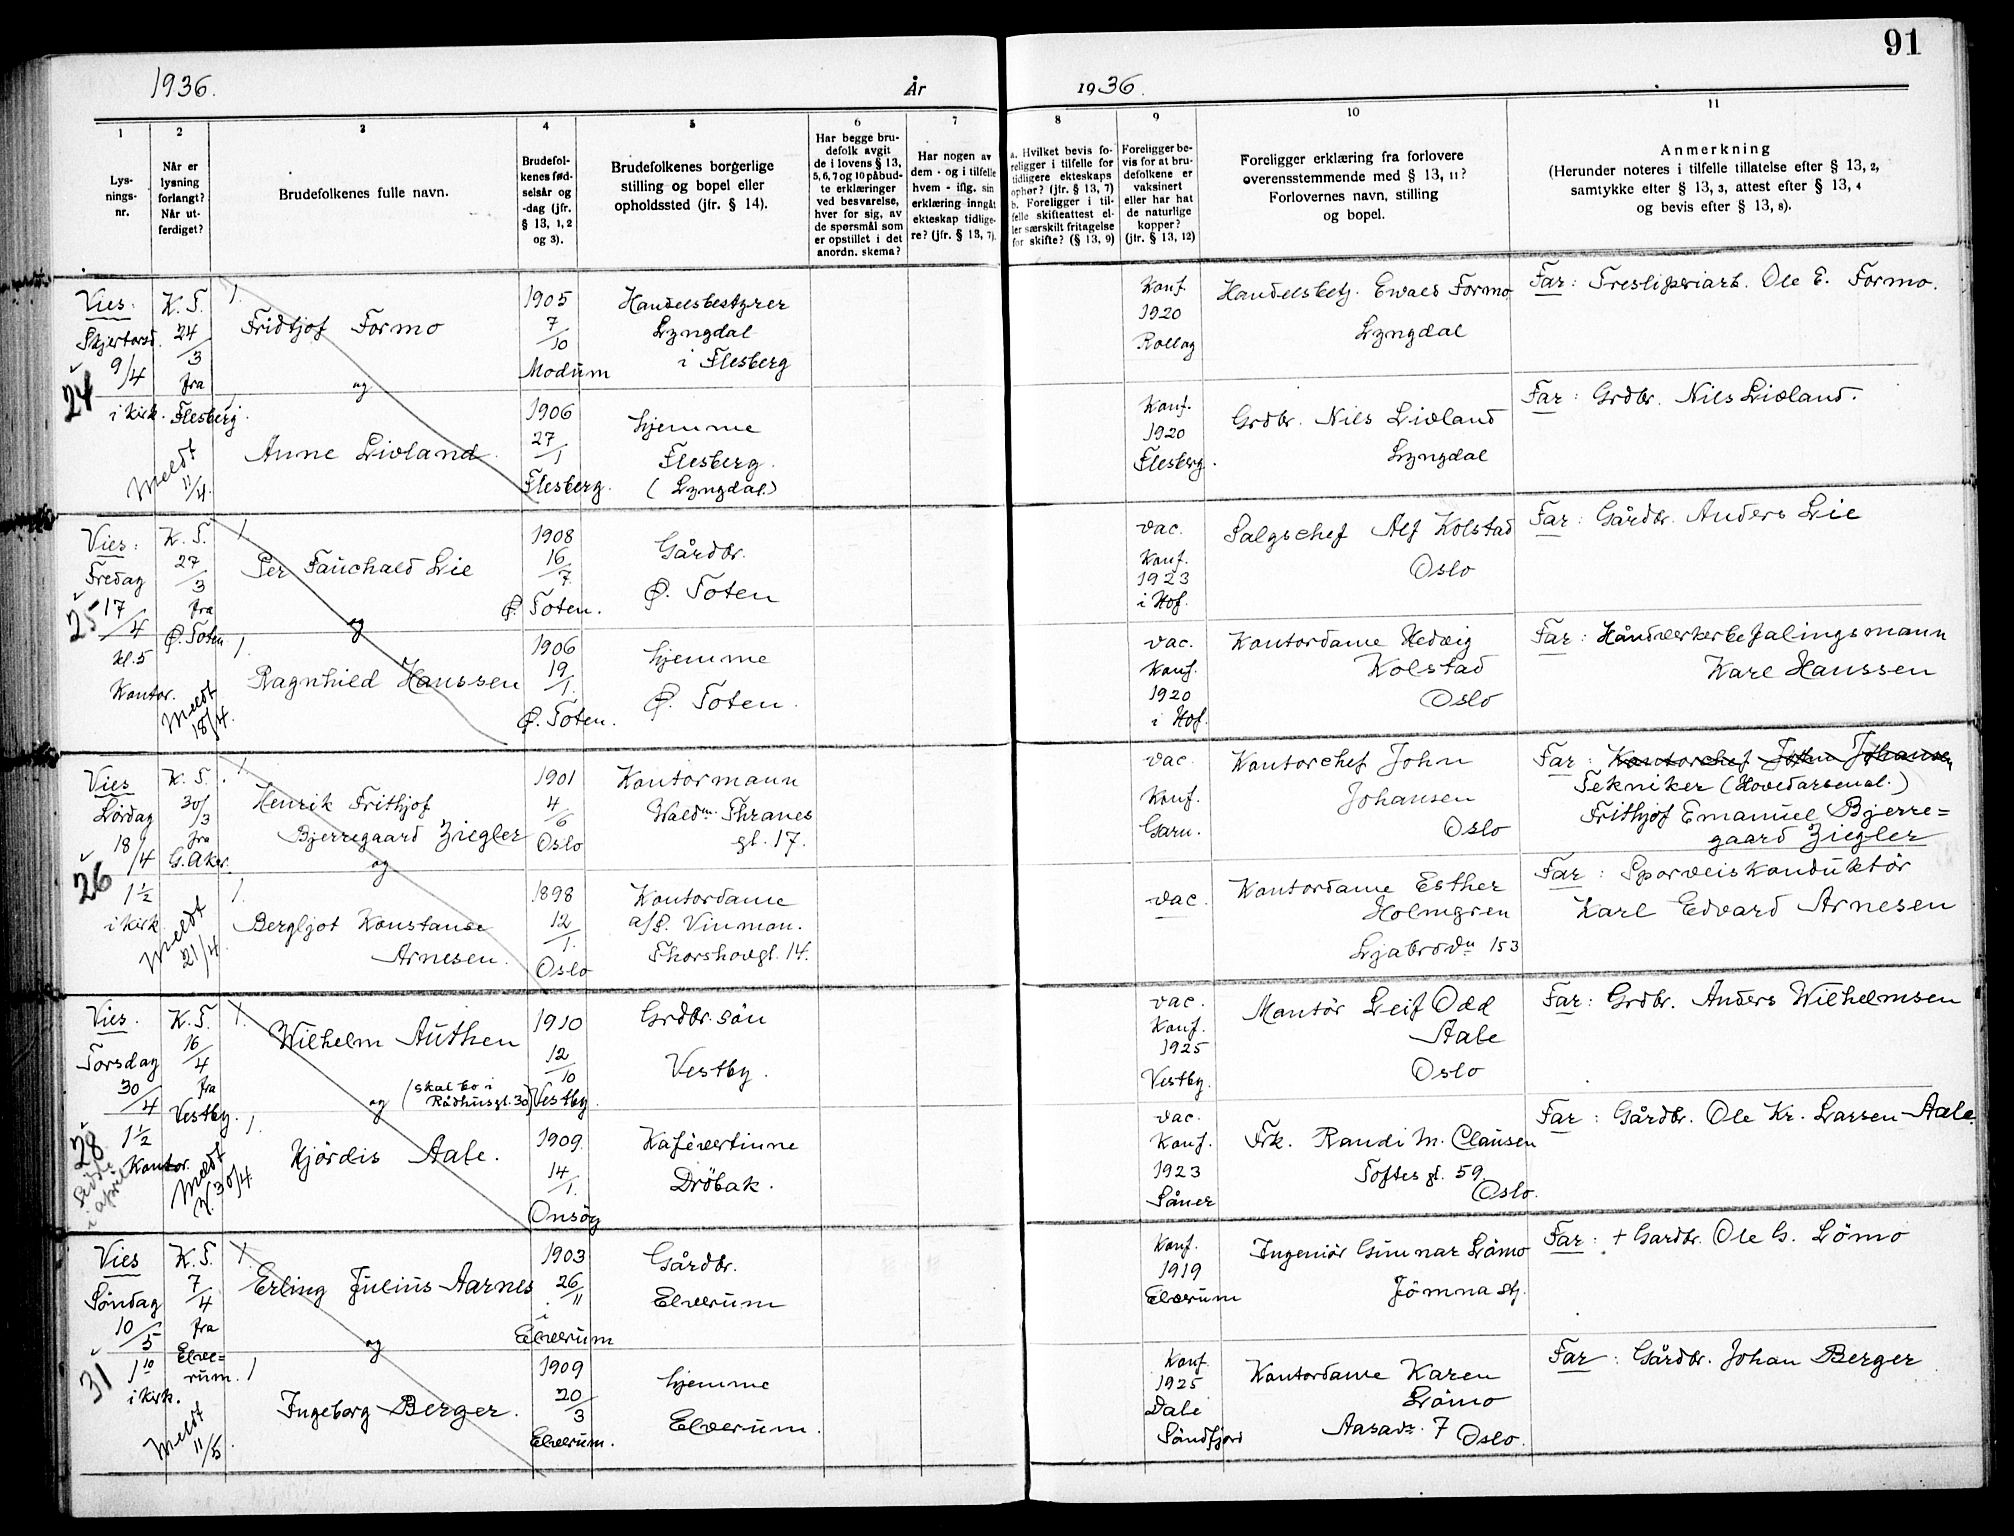 91
1936. År 1936.
1
2
3
4
5
6
7
8
9
10
11
Lys-
nings-
nr.
Når er
lysning
forlangt?
Når ut-
ferdiget?
Brudefolkenes fulle navn.
Brudefol-
kenes fød-
selsår og
-dag (jfr.
§ 13, 1, 2
og 3).
Brudefolkenes borgerlige
stilling og bopel eller
opholdssted (jfr. § 14).
Har begge bru-
defolk avgit
de i lovens § 13,
5, 6, 7 og 10 påbud-
te erklæringer
ved besvarelse,
hver for sig, av
de spørsmål som
er opstillet i det
anordn. skema?
Har nogen av
dem - og i tilfelle
hvem - iflg. sin
erklæring inngåt
ekteskap tidlige-
re? (jfr. § 13, 7).
a. Hvilket bevis fo-
religger i tilfelle for
tidligere ekteskaps
ophør? (jfr. § 13, 7)
b. Foreligger i til-
felle skifteattest el-
ler særskilt fritagelse
for skifte? (§ 13, 9)
Foreligger be-
vis for at bru-
defolkene er
vaksinert
eller har hat
de naturlige
kopper?
(jfr. § 13, 12)
Foreligger erklæring fra forlovere
overensstemmende med § 13, 11?
Forlovernes navn, stilling
og bopel.
Anmerkning
(Herunder noteres i tilfelle tillatelse efter § 13, 2,
samtykke efter § 13, 3, attest efter § 13, 4
og bevis efter § 13, 8).
Vies:
Skjertorsd.
9/4
24
i kirk.
K. T.
24/3
fra
Flesberg.
Meldt
11/4.
1.
Fridtjof Formo
og
1.
Anne Livland.
1905
7/10
Modum
1906
27/1
Flesberg.
Handelsbestyrer
Lyngdal
i Flesberg
hjemme
Flesberg.
(Lyngdal.)
Konf.
1920
Rollag
Konf.
1920
Flesberg.
Handelsbetj. Ewald Formo
Lyngdal
Grdbr. Nils Livland
Lyngdal
Far: Tresliperiarb. Ole E. Formo.
Far: Grdbr. Nils Livland.
Vies:
Fredag
17/4
25
kl. 5
Kontor.
K. T.
27/3
fra
Ø. Toten
Meldt
18/4.
1.
Per Fauchald Lie
og
1.
Ragnhild Hanssen
1908
16/7
Ø. Toten.
1906
19/1.
Ø. Toten.
Gårdbr.
Ø. Toten
hjemme
Ø. Toten.
vac.
Konf.
1923
i Hof.
vac.
Konf.
1920
i Hof.
Salgschef Alf Kolstad
Oslo
Kontordame Hedvig
Kolstad
Oslo
Far: Gårdbr. Anders Lie
Far: Håndverkerbefalingsmann
Karl Hanssen
Vies
Lørdag
18/4
26
1½
i kirk.
K. T.
30/3
fra
G. Aker.
Meldt
21/4
1.
Henrik Frithjof
Bjerregaard Ziegler
og
1.
Bergljot Konstanse
Arnesen.
1901
4/6
Oslo
1898
12/1.
Oslo
Kontormann
Waldm. Thranes
gt. 17.
Kontordame
a/s. Vinmon.
Thorshovgt. 14.
vac.
Konf.
Garn.
vac.
Kontorchef John
Johansen
Oslo
Kontordame Esther
Holmgren
Ljabrovn 153
Far: Kontorchef John Johansen
Tekniker (Hovedarsenal.)
Frithjof Emanuel Bjerre=
gaard Ziegler
Far: Sporveiskonduktør
Karl Edvard Arnesen
Vies.
Torsdag
30/4
1½
28
Kontor.
Sidste
i april
K. T.
16/4
fra
Vestby.
Meldt
30/4.
1.
Wilhelm Authen
og (skal bo i
Rådhusgt. 30)
1.
Hjørdis Aale.
1910
12/10
Vestby.
1909.
14/1.
Onsøy
Grdbr. søn
Vestby.
Kafévertinne
Drøbak.
vac.
Konf.
1925
Vestby.
vac.
Konf.
1923
Såner
Montør Leif Odd
Aale
Oslo
Frk. Randi M. Clausen
Toftes gt. 59
Oslo.
Far: Grdbr. Anders Wilhelmsen
Far: Gårdbr. Ole Kr. Larsen Aale.
Vies
Søndag
10/5
31
1¹⁰
i kirk.
K. T.
7/4
fra
Elve=
rum.
Meldt
11/5
1.
Erling Julius Aarnes
og
1
Ingeborg Berger.
1903
26/11
i
Elverum
1909
20/3
Elverum.
Gårdbr.
Elverum
hjemme
Elverum.
Konf.
1919
Elverum
Konf.
1925
Dale
Søndfjord
Ingeniør Gunnar Lømo
Jømna st.
Kontordame Karen
Lømo
Aasavn. 7 Oslo.
Far: + Gardbr. Ole G. Lømo
Far: Gårdbr. Johan Berger